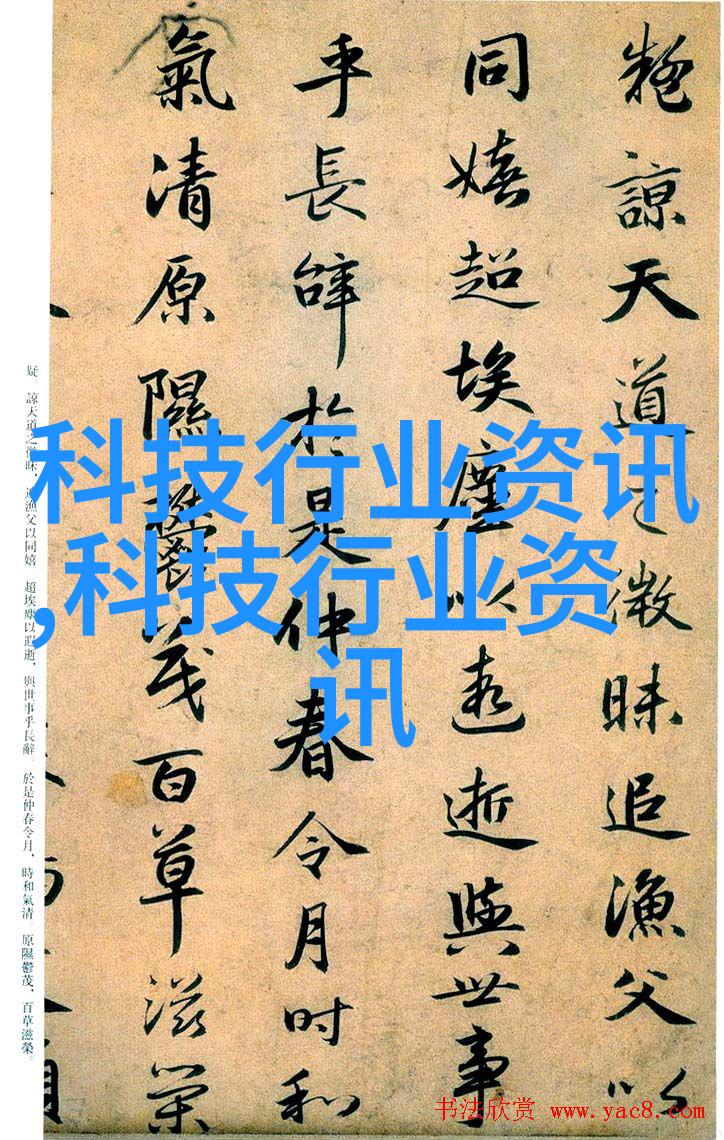 疑諒天道之微昧追漁父以
同嬉超埃塵以遐逝與世事
乎長辭於是仲春令月時和
氣清原隰鬱茂百草滋榮
疑。諒天道之微昧,追漁父以同嬉 超埃塵以遐逝,與世事乎長辭。於是仲春令月,時和氣清。原隰鬱茂,百草滋榮。
科技行业资讯
,科技行业资
讯
书法欣赏 www.yac8.com